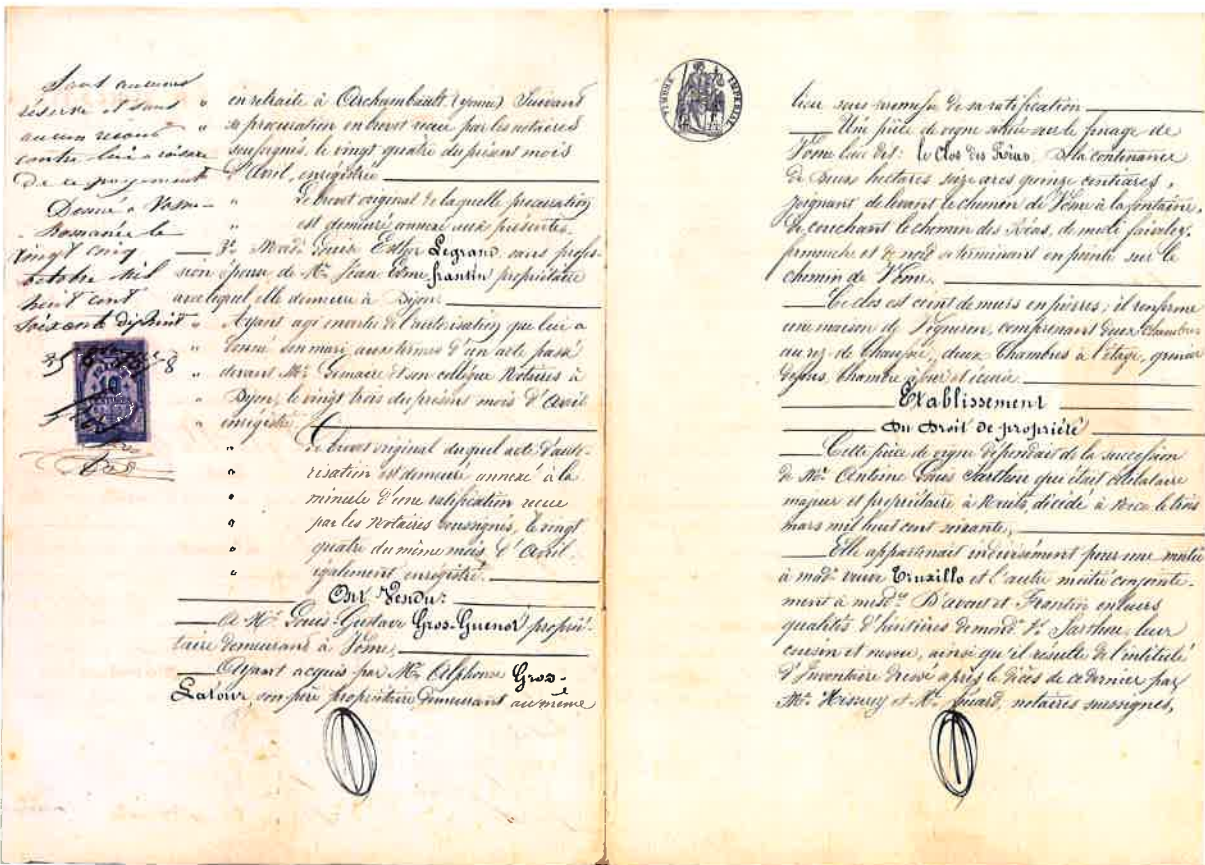 Sauf aucune
réserve et sans
aucun recours
contre lui à raison
de ce payement
Donné à Vosne-
Romanée le
vingt cinq
octobre mil
huit cent
soixante dix huit
10
en retraite à Archambault (yonne) Suivant
sa procuration en brevet reçue par les notaires
soussignés, le vingt quatre du présent mois
d'Avril, enregistrée
Le brevet original de laquelle procuration
est demeuré annexé aux présentes.
3° Made Louise Esther Legrand, sans profes-
sion épouse de Mr Jean Come frantin propriétaire
avec lequel elle demeure à Dijon
Ayant agi en vertu de l'autorisation que lui a
donné son mari, aux termes d'un acte passé
devant Me et son collègue Notaires à
Dijon, le vingt trois du présent mois d'Avril
enregistré.
Le brevet original duquel acte d'auto-
risation est demeuré annexé à la
minute d'une ratification reçue
par les Notaires soussignés, le vingt
quatre du même mois d'Avril
également enregistré.
Ont Vendu:
A Mr Louis-Gustave Gros-Guenot proprié-
taire demeurant à Vosne,
Ayant acquis par Mr Alphonse Gros-
Latour, son père propriétaire demeurant au même
TIMBRE IMPERIAL
lieu sous promesse de sa ratification
Une pièce de vigne située sur le finage de
Vosne lieu dit: le Clos des Réas, de la contenance
de deux hectares seize ares quinze centiares,
joignant de levant le chemin de Vosne à la fontaine,
de couchant le chemin des Réas, de midi faiveley,
et de nord se terminant en pointe sur le
chemin de Vosne.
Ce clos est ceint de murs en pierres; il renferme
une maison de Vigneron, comprenant deux Chambres
au rez-de Chaussée, deux Chambres à l'étage, grenier
dessus, Chambre à four et écurie
Etablissement
Du Droit de propriété
Cette pièce de vigne dépendait de la succession
de Mr Antoine Louis Sarthou qui était célibataire
majeur et propriétaire à Nuits, décédé à Nice le trois
mars mil huit cent soixante,
Elle appartenait indivisément pour une moitié
à made veuve Truxillo et l'autre moitié conjointe-
ment à mesdes D'avout et Frantin en leurs
qualités d'héritières de mond. Sr Sarthou, leur
cousin et neveu, ainsi qu'il résulte de l'intitulé
d'Inventaire dressé après le décès de ce dernier par
Me et Me notaires soussignés,